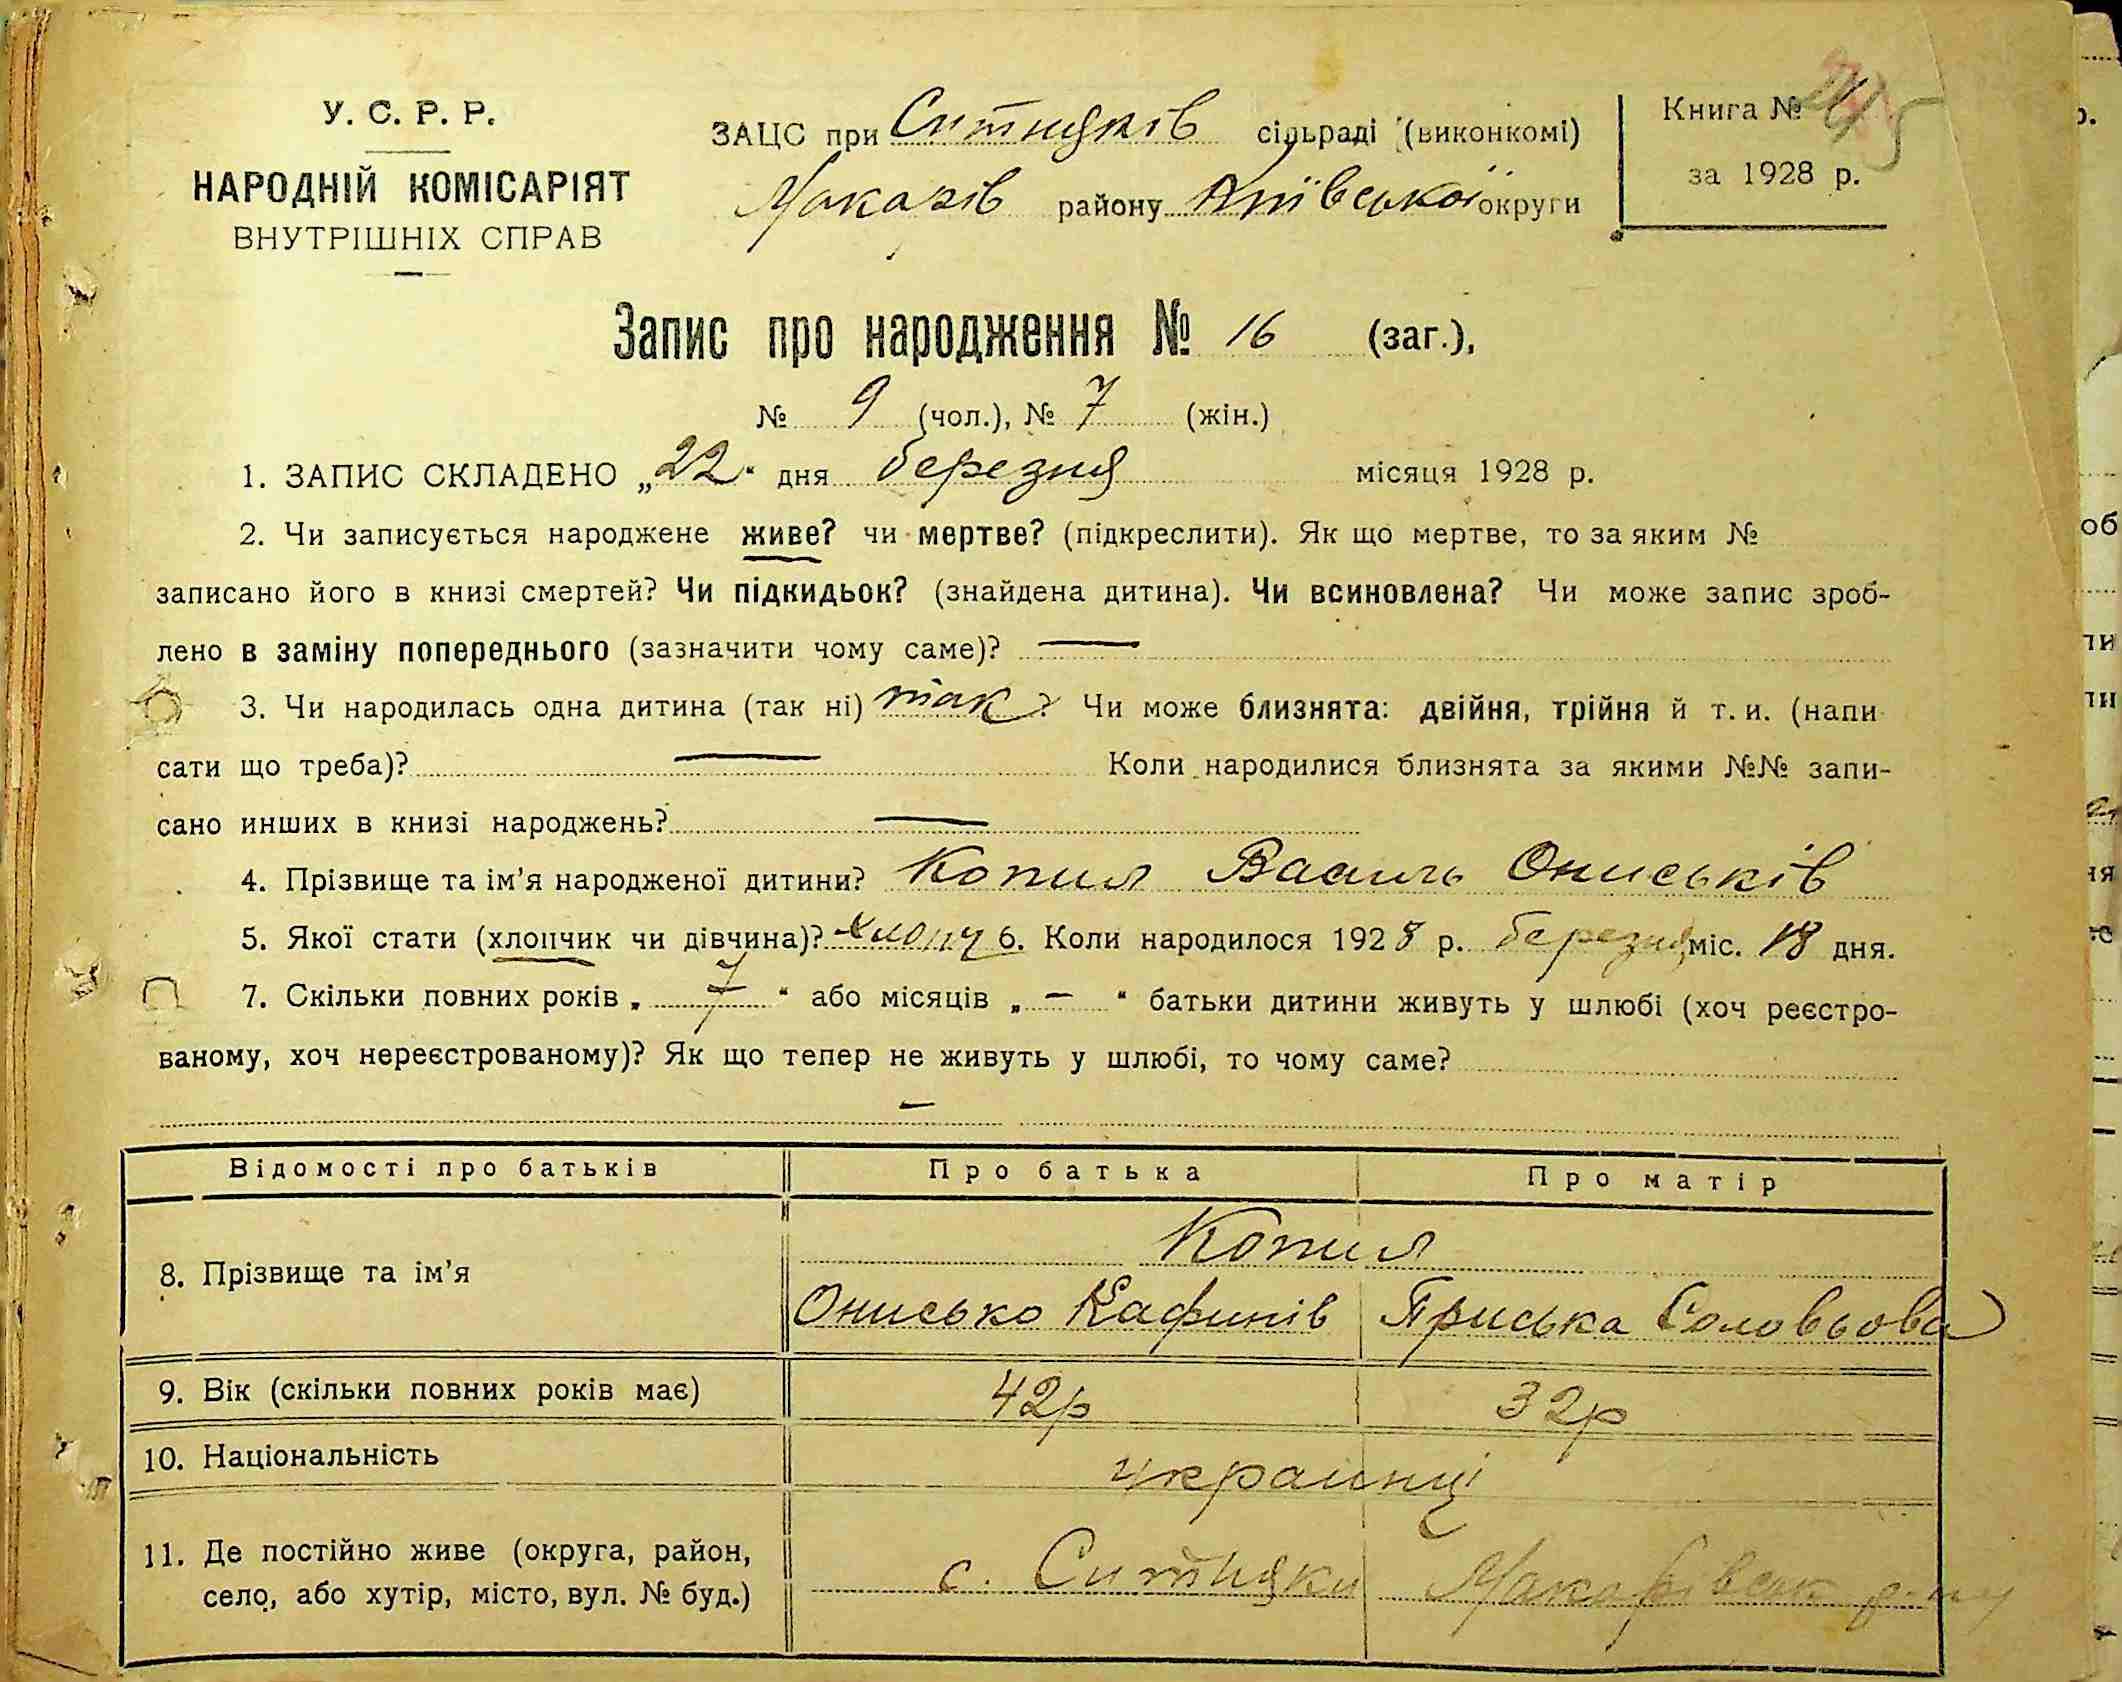 У. С. Р. Р.
НАРОДНІЙ КОМІСАРІЯТ
ВНУТРІШНІХ СПРАВ
ЗАЦС при Ситняків сільраді (виконкомі)
Макарів району Київської округи
Книга №
за 1928 р.
Запис про народження № 16 (заг.),
№ 9 (чол.), № 7 (жін.)
1. ЗАПИС СКЛАДЕНО „22“ дня березня місяця 1928 р.
2. Чи записується народжене живе? чи мертве? (підкреслити). Як що мертве, то за яким №
записано його в книзі смертей? Чи підкидьок? (знайдена дитина). Чи всиновлена? Чи може запис зроб-
лено в заміну попереднього (зазначити чому саме)? —
3. Чи народилась одна дитина (так ні) так? Чи може близнята: двійня, трійня й т. и. (напи
сати що треба)? — Коли народилися близнята за якими №№ запи-
сано инших в книзі народжень? —
4. Прізвище та ім’я народженої дитини? Копил Василь Ониськів
5. Якої стати (хлопчик чи дівчина)? хлопч 6. Коли народилося 1928 р. березня міс. 18 дня.
7. Скільки повних років „ 7 “ або місяців „ — “ батьки дитини живуть у шлюбі (хоч реєстро-
ваному, хоч нереєстрованому)? Як що тепер не живуть у шлюбі, то чому саме?
—
Відомості про батьків Про батька Про матір
8. Прізвище та ім’я Копил
Онисько Кафинів Приська Соловьова
9. Вік (скільки повних років має) 42р 32р
10. Національність украинці
11. Де постійно живе (округа, район,
село, або хутір, місто, вул. № буд.) с. Ситняки Макарівськ р-ну